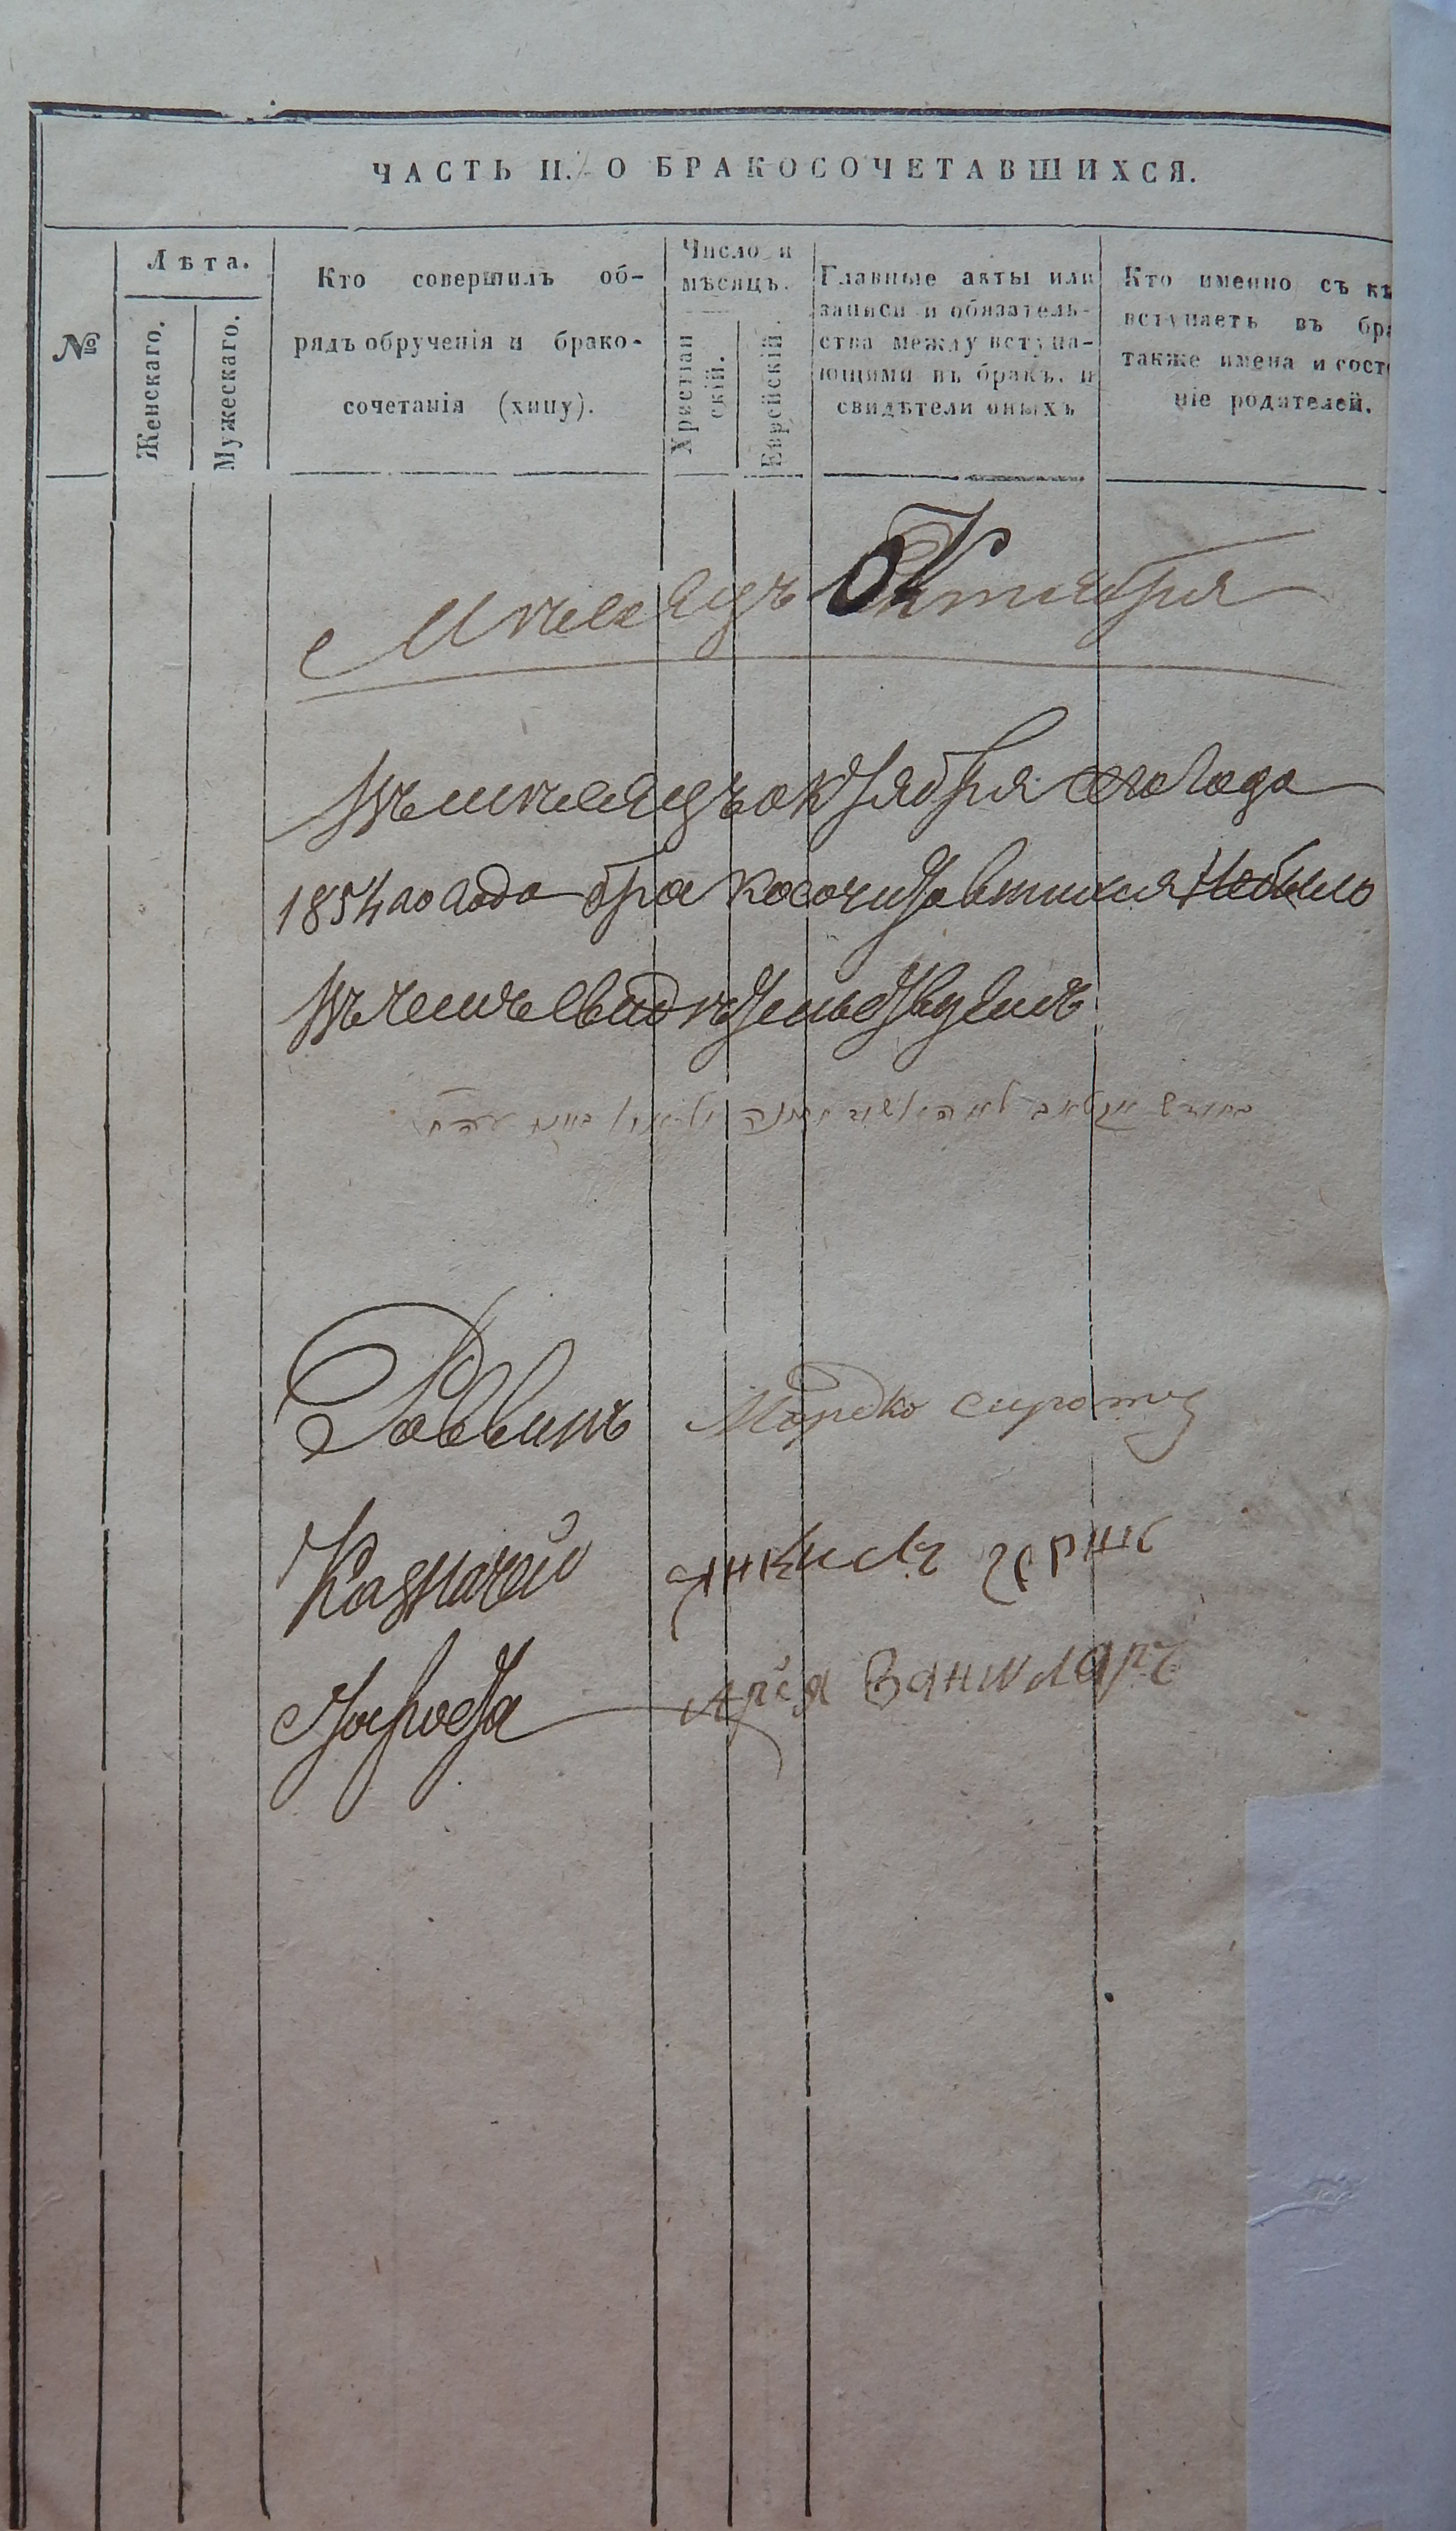 ЧАСТЬ II. О БРАКОСОЧЕТАВШИХСЯ.
№
Лѣта.
Женскаго.
Мужескаго.
Кто совершилъ об-
рядъ обрученія и брако-
сочетанія (хупу).
Число и
мѣсяцъ.
Христіан
скій.
Еврейскій.
Главные акты или
записи и обязатель-
ства между вступа-
ющими въ бракъ, и
свидѣтели оныхъ
Кто именно съ кѣ
вступаетъ въ бра
также имена и состо
ніе родителей.
Мѣсяцъ Октября
Въ мѣсяцѣ октября сего года
1854 го года бракосочитавшихся небыло
Въ чемъ свидѣтельствуемъ
Раввинъ Мордко сирота
Казначей Янкиль
Староста